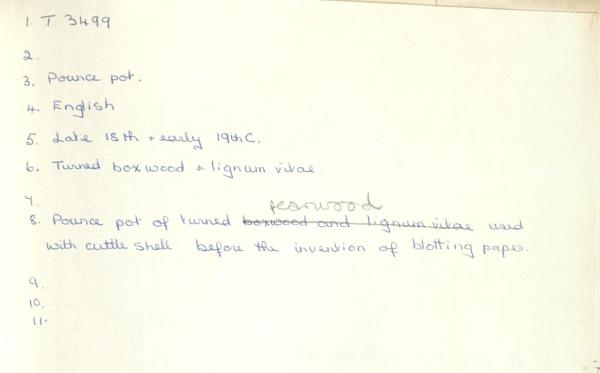 1. T 3499
2.
3. Pounce pot.
4. English
5. Late 18th + early 19th C.
6. Turned boxwood & lignum vitae.
7.
pearwood
8. Pounce pot of turned boxwood and lignum vitae used
with cuttle shell before the invention of blotting paper.
9.
10.
11.